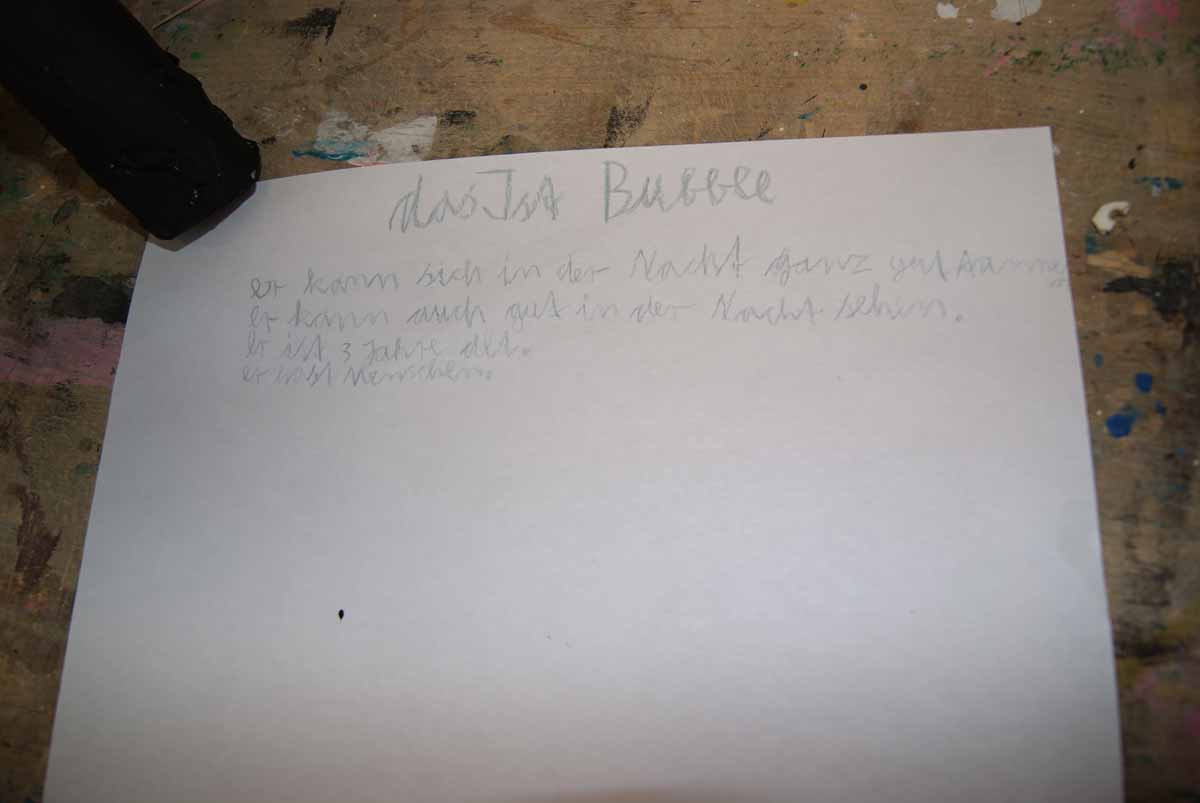 das Ist Bubble
er kann sich in der Nacht ganz gut
er kann auch gut in der Nacht sehen.
er ist 3 Jahre alt.
er hast Menschen.